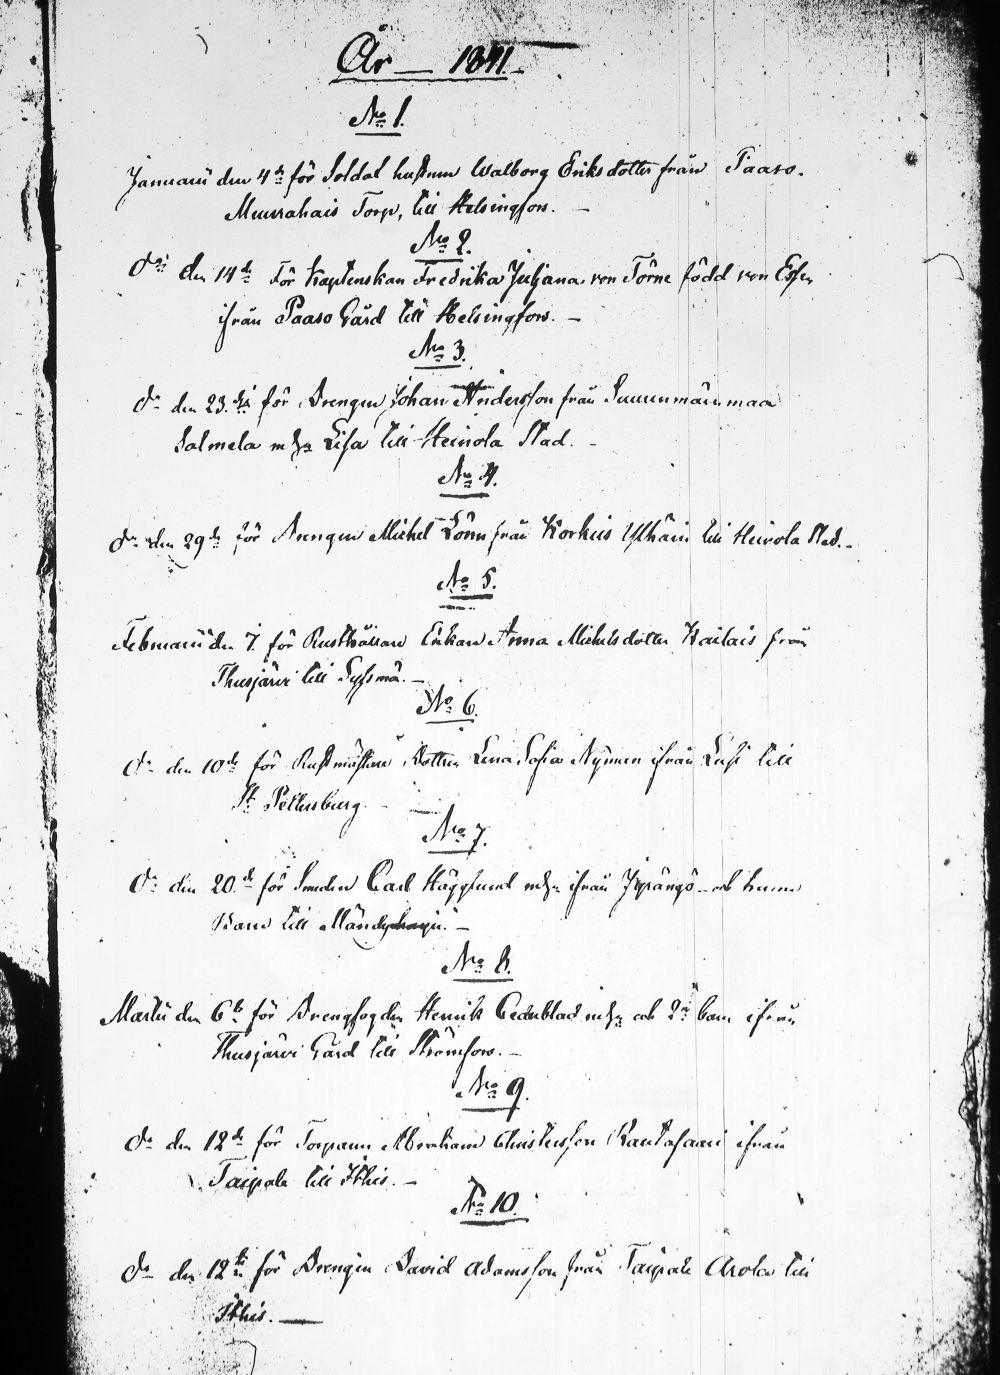 År — 1841.
No 1.
Januarii den 4de för Soldat hustrun Walborg Eriksdotter från Paaso.
Muurahais Torp, till Helsingfors. —
No 2.
Do den 14de För Kaptenskan Fredrika Juljana von Törne född von Essen
ifrån Paaso Gård till Helsingfors. —
No 3.
Do den 23. för Drengen Johan Andersson från
Salmela Lisa till Heinola Stad. —
No 4.
Do den 29de för Drengen Michel Lönn från Korkeis till Heinola Stad. —
No 5.
Februarii den 7. för Rusthållare Enkan Anna Michelsdotter från
Thusjärvi till Syssmä. —
No 6.
Do den 10de för Dottren Lena Sofia Nyman ifrån Lusi till
St Petersburg. —
No 7.
Do den 20.de för Smeden Carl Hägglund ifrån och
Barn till —
No 8.
Martii den 6te för Drengfogden Henrik Cederblad och 2ne barn ifrån
Thusjärvi Gård till Strömfors. —
No 9.
Do den 12de för Torparen Abraham Christersson Rautasaari ifrån
Taipale till Ithis. —
No 10.
Do den 12te för Drengen David Adamsson från Taipale Arola till
Ithis. —